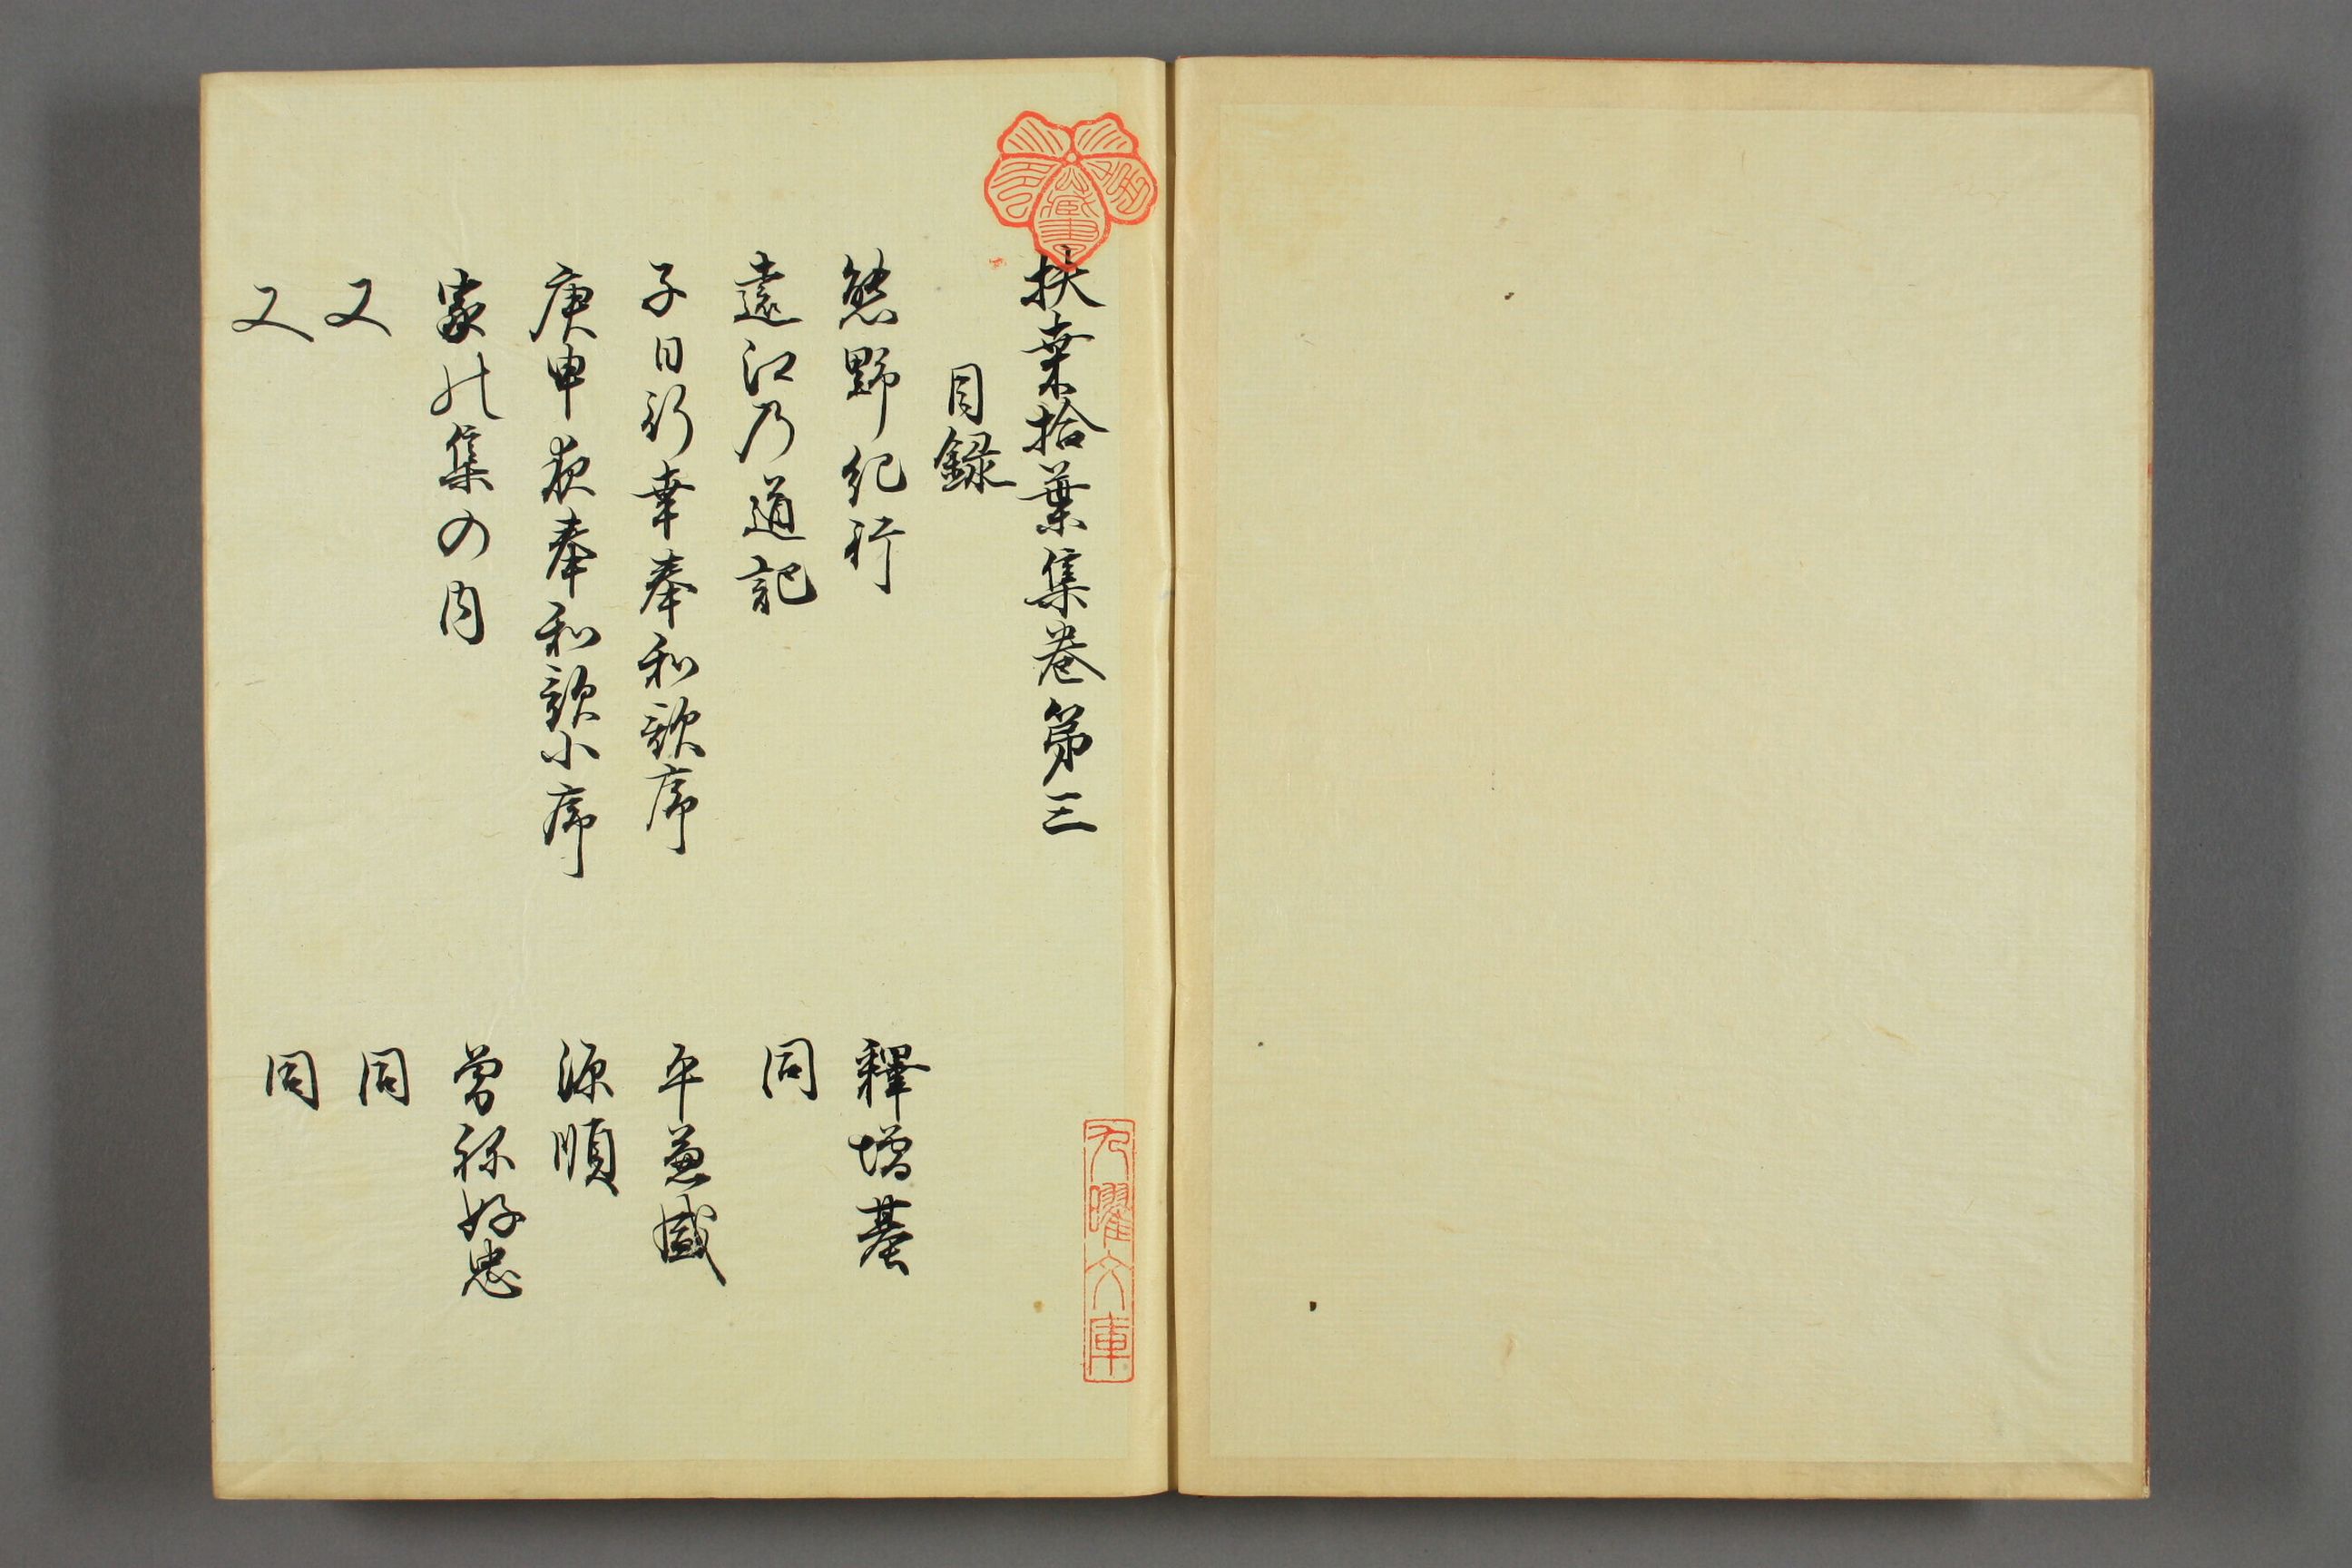 扶桒拾葉集巻第三
目録
熊野紀行　釋増基
遠江乃道記　同
子日行幸奉和歌序　平兼盛
庚申夜奉和歌小序　源順
家の集の内　曽祢好忠
又　同
又　同
九曜文庫